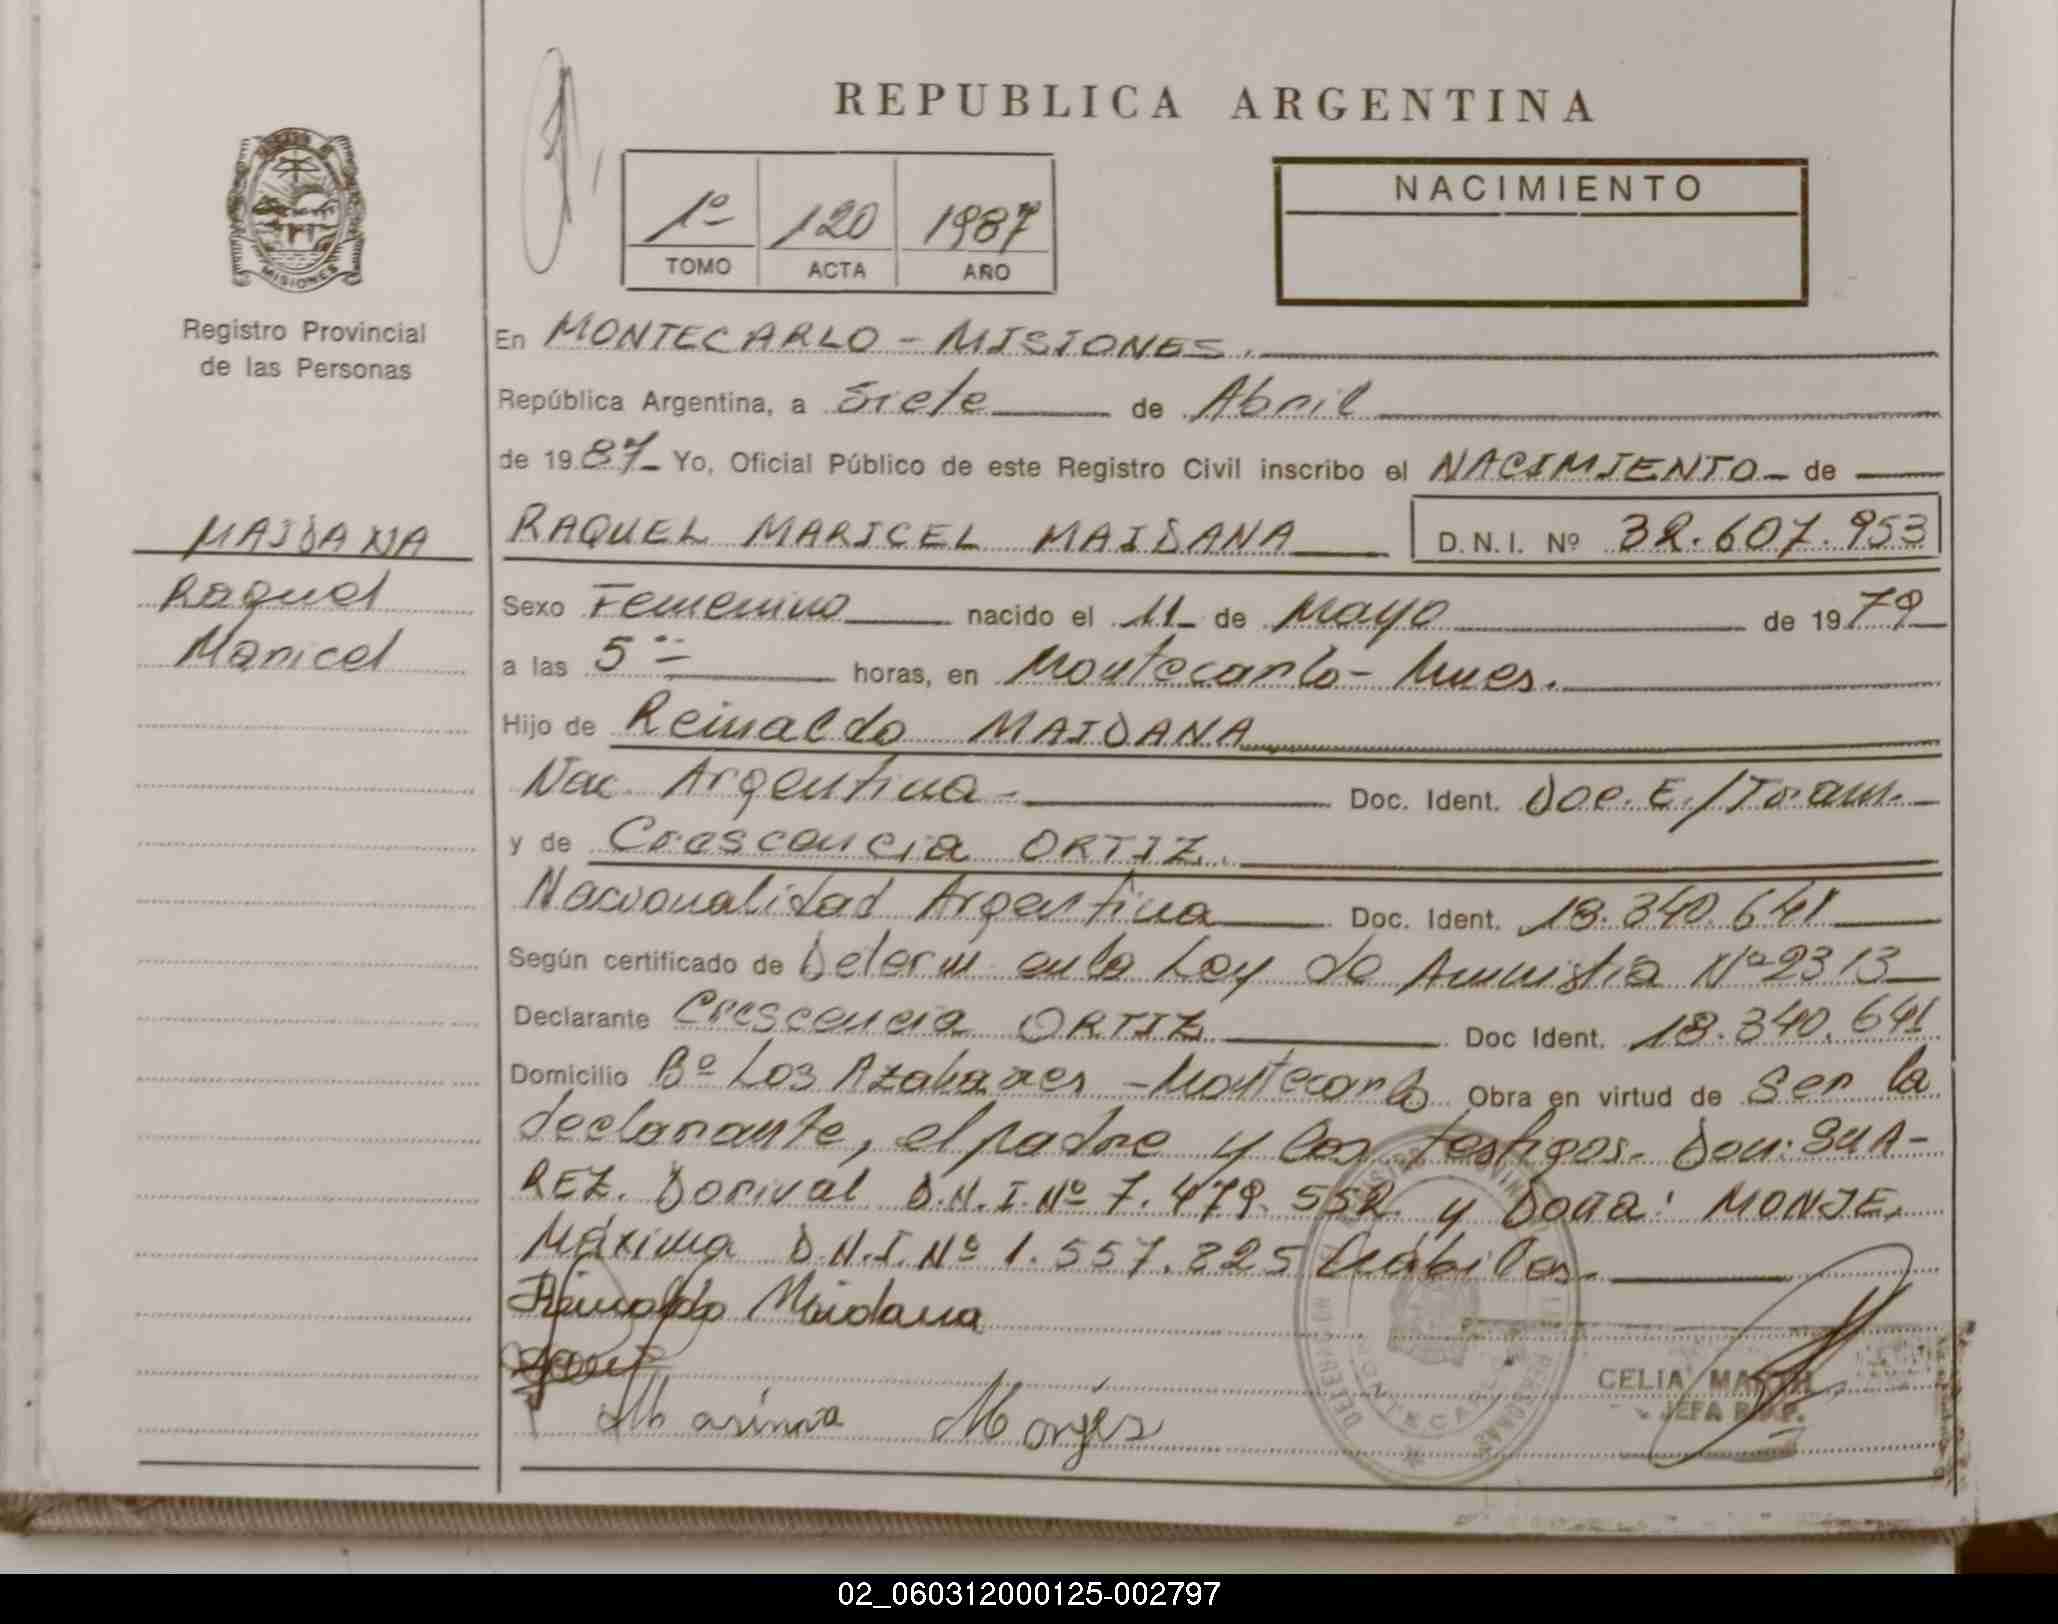 REPUBLICA ARGENTINA
NACIMIENTO
1º 120 1987
TOMO ACTA AÑO
MISIONES
Registro Provincial
de las Personas
MAIDANA
Raquel
Maricel
En MONTECARLO - MISIONES.
República Argentina, a Siete de Abril
de 1987 Yo, Oficial Público de este Registro Civil inscribo el NACIMIENTO de
RAQUEL MARICEL MAIDANA D.N.I. Nº 32.607.953
Sexo Femenino nacido el 11 de Mayo de 1979
a las 5 horas, en Montecarlo - Mnes.
Hijo de Reinaldo MAIDANA
Nac. Argentina Doc. Ident. Doc. E./Tram.
y de Crescencia ORTIZ
Nacionalidad Argentina Doc. Ident. 18.340.641
Según certificado de Determ en la Ley de Amnistia Nº 2313
Declarante Crescencia ORTIZ Doc Ident. 18.340.641
Domicilio Bº Los Azahares - Montecarlo Obra en virtud de Ser la
declarante, el padre y los testigos. Don: SUA-
REZ. Dorival D.N.I. Nº 7.479.552 y Doña: MONJE,
Máxima D.N.I. Nº 1.557.225 hábiles.
Reinaldo Maidana
CELIA
JEFA
02_060312000125-002797